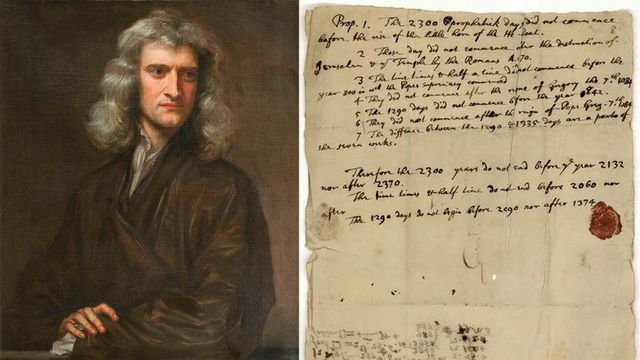 8
Prop. 1. The 2300 prophetick days did not commence
before the rise of the little horn of the He Goat.
2 Those day did not commence after the destruction of
Jerusalem & ye Temple by the Romans A. 70.
3 The time times & half a time did not commence before the
year 800 in wch the Popes supremacy commenced
4 They did not commence after the reigne of Gregory the 7th. 1084
5 The 1290 days did not commence before the year 842.
6 They did not commence after the reigne of Pope Greg. 7th. 1084
7 The diffence between the 1290 & 1335 days are a parts of
the seven weeks.
Therefore the 2300 years do not end before ye year 2132
nor after 2370.
The time times & half time do not end before 2060 nor
after
The 1290 days do not begin before 2090 nor after 1374